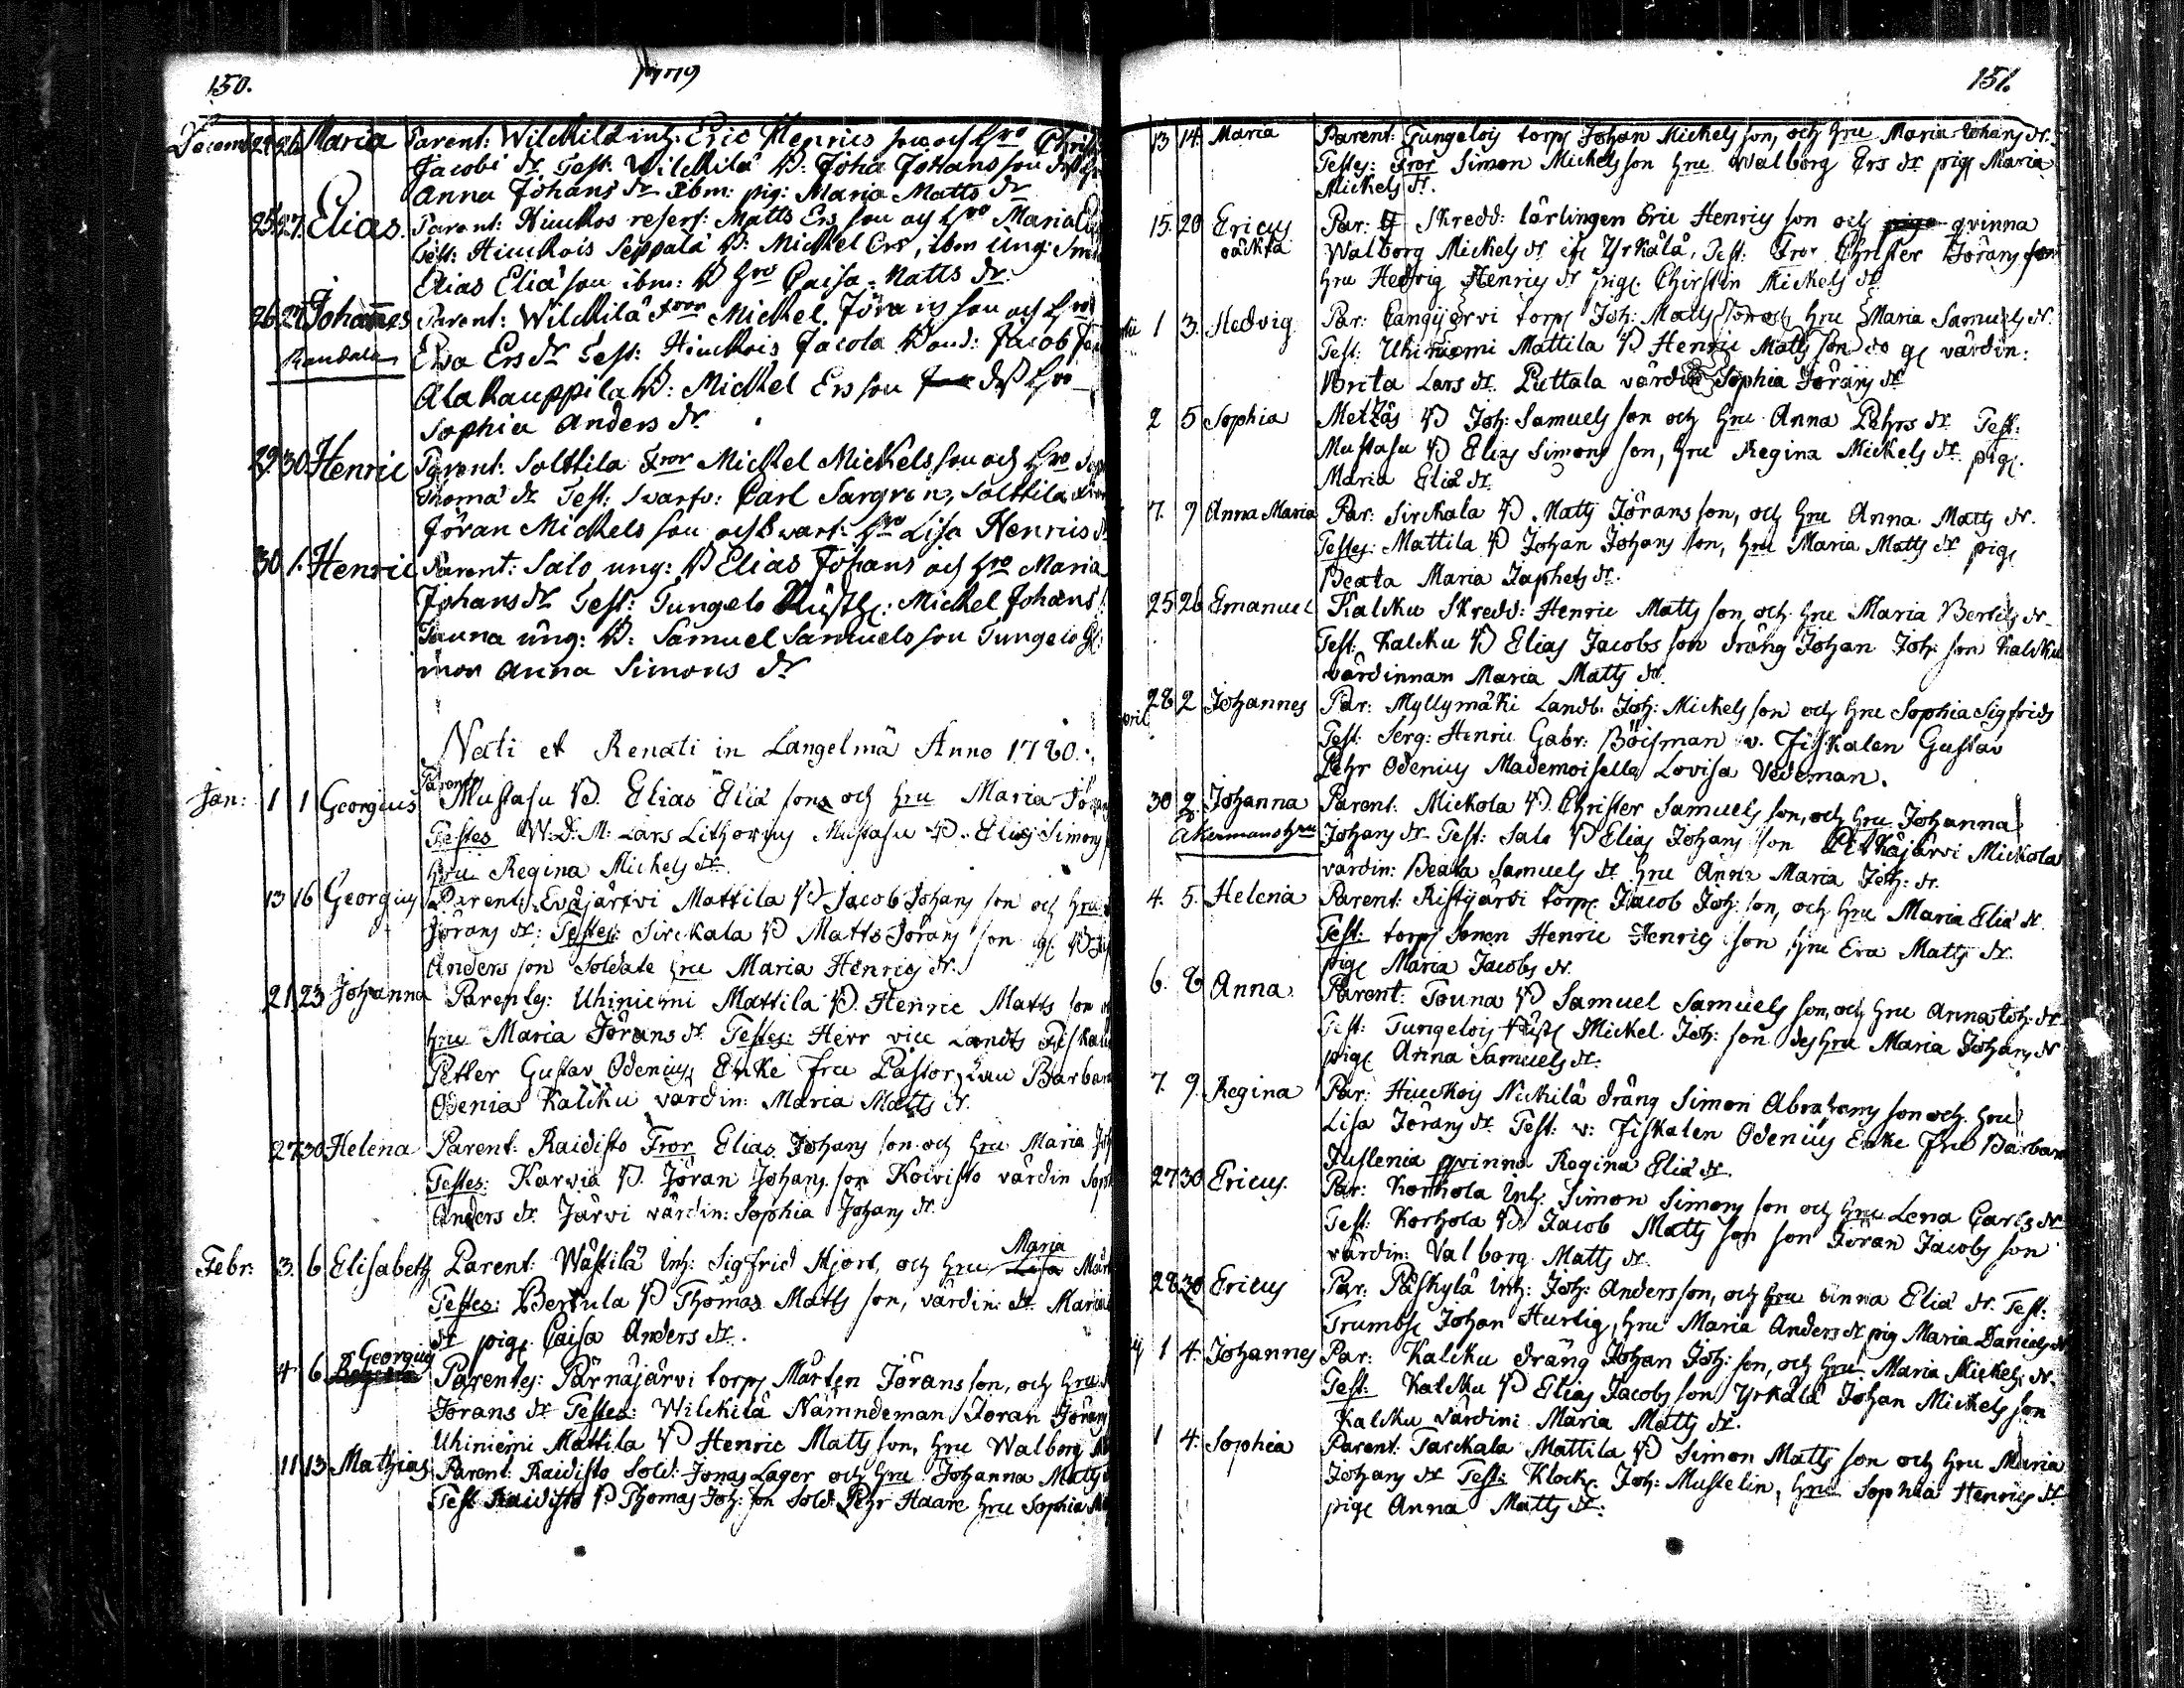 150.
1779
Decemb 24 26 Maria Parent: Wilckilä inh: Eric Henrics son och hro Christ
Jacobi dr Test: Wilckilä B: Joha Johans son dess hr
Anna Johans dr ibm: pig: Maria Matts dr
25 27. Elias. Parent: Hiuckos reserf: Matts Ers son och hro Maria
Test: Hiuckois Seppälä B: Mickel Ers, ibm ung:
Elias Eliä son ibm: B hro Caisa Matts dr.
26 27 Johannes Parent: Wilckilä Mickel Jöra ns son och hro
Randala Ewa Ers dr Test: Hiuckois Jacola Bond: Jacob
Alakauppila B: Mickel Ers son dess hro
Sophia Anders dr.
29 30 Henric Parent: Solttila Mickel Mickels son och hro
Thoma dr Test: Carl Sargren, Solttila
Jöran Mickels son och hro Lisa Henrics dr
30 1. Henric Parent: Salo ung: B Elias Johans och hro Maria
Johans dr Test: Tungelo Rusth: Mickel Johans
Tauna ung: B: Samuel Samuels son Tungelo
mor Anna Simons dr
Nati et Renati in Langelmä Anno 1780.
Parent
Jan: 1 1 Georgius Mustasu B. Elias Eliä sons och hru Maria
Testes W.D.M. Lars Lithovius Mustasu B. Elias Simons
hru Regina Michels dr.
13 16 Georgius Parent: Eväjärvi Mattila B Jacob Johans son och hru
Jörans dr: Testes: Sirckala B Matts Jörans son
Anders son Soldate hru Maria Henrics dr.
21 23 Johanna Parentes: Uhiniemi Mattila B. Henric Matts son
hru Maria Jörans dr Testes: Herr vice Landts Fiskal
Petter Gustav Odenius, Enke fru Pastor Barbara
Odenia Kalcku värdin: Maria Matts dr.
27 30 Helena Parent: Raidisto Elias Johans son och hru Maria
Testes: Karvia B. Jöran Johans son Koivisto värdin
Anders dr. Järvi värdin: Sophia Johans dr.
Maria
Febr: 3. 6 Elisabeth Parent: Wästilä Inh: Sigfrid Hjort, och hru Lisa
Testes: Bertula B Thomas Matts son, värdin: dr. Maria
dr pige Caisa Anders dr.
Georgius
4 6 Parentes: Pärnäjärvi torps Mårten Jörans son, och hru
Jörans dr Testes: Wilckilä Nämndeman Jöran Jörans
Uhiniemi Mattila B Henric Matts son, hru Walborg
11 13 Mathias Parent: Raidisto Sold: Jonas Lager och hru Johanna Matts
Test Raidisto B Thomas Joh: son Sold: Pehr Haare hru Sophia
151.
13 14. Maria Parent: Tungelois torps Johan Mickels son, och hru Maria Johans dr.
Testes: Simon Mickels son hru Walborg Ers dr pige Maria
Mickels dr.
15. 20 Ericus Par: Skredd: lärlingen Eric Henrics son och piga qvinna
oäckta Walborg Mickels dr Yrkälä, Test: Christer Jörans son
hru Hedvig Henrics dr pige Chirstin Mickels dr
1 3. Hedvig Par: Cangijervi torps Joh: Matts son och hru Maria Samuels dr.
Test: Uhiniemi Mattila B Henric Matts son do värdin:
Brita Lars dr. Puttala värdin Sophia Jörans dr
2 5 Sophia Metzäs B Joh: Samuels son och hru Anna Pehrs dr Test:
Mustasu B Elias Simons son, hru Regina Mickels dr. pige
Maria Eliä dr.
7. 9 Anna Maria Par: Sirckala B Matts Jörans son, och hru Anna Matts dr.
Testes: Mattila B Johan Johans son, hru Maria Matts dr pige
Beata Maria Japhets dr.
25 26 Emanuel Kalcku Skredd: Henric Matts son, och hru Maria Bertils dr.
Test: Kalcku B Elias Jacobs son dräng Johan Joh: son Kalcku
värdinnan Maria Matts dr.
28 2 Johannes Par: Myllymäki Landb: Joh: Mickels son och hru Sophia Sigfrids
April Test: Serg: Henric Gabr: Böisman v. Fiskalen Gustav
Pehr Odenius Mademoisella Lovisa Vedeman.
30 2. Johanna Parent: Mickola B Christer Samuels son, och hru Johanna
Akermans hru Johans dr Test: Salo B Elias Johans son Pitkäjärvi Mickola
värdin: Beata Samuels dr hru Anna Maria Joh: dr.
4. 5. Helena Parent: Ristijärvi torpe Jacob Joh: son, och hru Maria Eliä dr.
Test: torps sonen Henric Henrics son, hru Eva Matts dr.
pige Maria Jacobs dr.
6. 8 Anna Parent: Touna B Samuel Samuels son, och hru Anna Joh: dr
Test: Tungelois Rust Mickel Joh: son des hru Maria Johans dr
pige Anna Samuels dr.
7. 9. Regina Par: Hiuckois Nickilä dräng Simon Abrahams son och hru
Lisa Jörans dr Test: v: Fiskalen Odenius Enke fru Barbara
Juslenia qvinna Regina Eliä dr.
27 30 Ericus. Par: Korhola Inh: Simon Simons son och hru Lena Carls dr
Test: Korhola B Jacob Matts son son Jöran Jacobs son
värdin: Valborg Matts dr.
28 30 Ericus Par: Päskylä Inh: Joh: Anders son, och hru Anna Eliä dr. Test:
Trumbsl Johan Hurtig, hru Maria Anders dr pig Maria Daniels dr
1 4. Johannes Par: Kalcku dräng Johan Joh: son, och hru Maria Mickels dr.
Test: Kalcku B Elias Jacobs son, Yrkälä Johan Mickels son
Kalcku värdin: Maria Matts dr.
1 4. Sophia Parent: Tarckala Mattila B Simon Matts son och hru Maria
Johans dr Test: Klock: Joh: Mustelin, hru Sophia Henrics dr
pige Anna Matts dr: